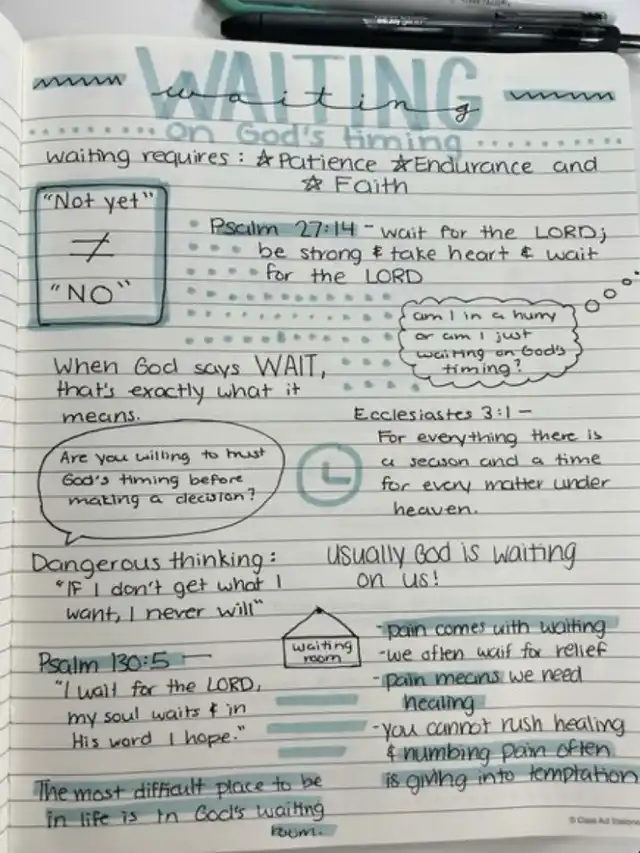 WAITING
waiting
on God's timing
waiting requires: ☆Patience ☆Endurance and
☆ Faith
"Not yet"
≠
"NO"
Psalm 27:14 - wait for the LORD;
be strong & take heart & wait
for the LORD
am I in a hurry
or am I just
waiting on God's
timing?
When God says WAIT,
that's exactly what it
means.
Ecclesiastes 3:1 -
For everything there is
a season and a time
for every matter under
heaven.
Are you willing to trust
God's timing before
making a decision?
Dangerous thinking:
"IF I don't get what I
want, I never will"
usually God is waiting
on us!
waiting
room
Psalm 130:5 -
"I wait for the LORD,
my soul waits & in
His word I hope."
-pain comes with waiting
-we often wait for relief
-pain means we need
healing
-you cannot rush healing
& numbing pain often
is giving into temptation
The most difficult place to be
in life is in God's waiting
room.
© Class Act